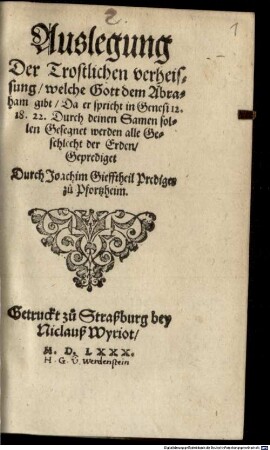 2.
1
Auslegung
Der Trostlichen verheis-
sung/ welche Gott dem Abra-
ham gibt/ Da er spricht in Genesi 12.
18. 22. Durch deinen Samen sol-
len Gesegnet werden alle Ge-
schlecht der Erden/
Geprediget
Durch Joachim Giefftheil Prediger
zů Pfortzheim.
Getruckt zů Straßburg bey
Niclauß Wyriot/
M. D. LXXX.
H. G. V. Werdenstein